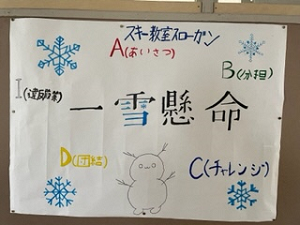 スキー教室スローガン
A(あいさつ)
B(分担)
I
一雪懸命
D(団結)
C(チャレンジ)